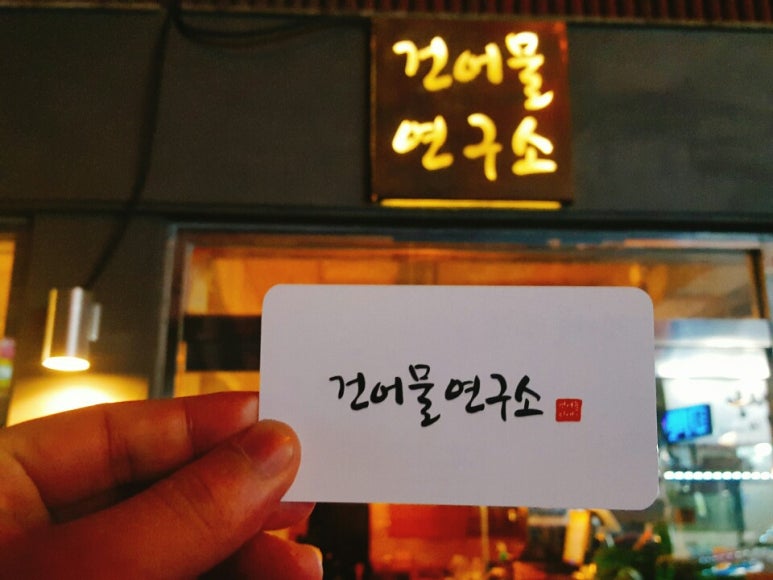 건어물
연구소
건어물연구소